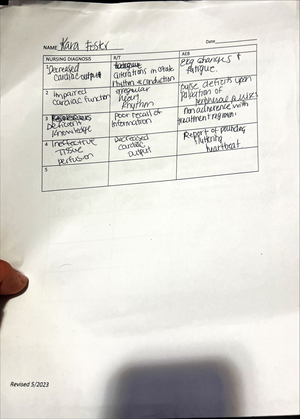 NAME Kara Foster Date
NURSING DIAGNOSIS R/T AEB
1 Decreased cardiac output
alterations in rate rhythm & conduction
ekg changes & fatigue.
2 Impaired cardiac function
irregular heart rhythm
pulse deficits upon palpation of peripheral pulses
3 Deficient knowledge
poor recall of information
non adherence with treatment regimen.
4 Ineffective tissue perfusion
Decreased cardiac output
Report of pounding fluttering heartbeat
5
Revised 5/2023